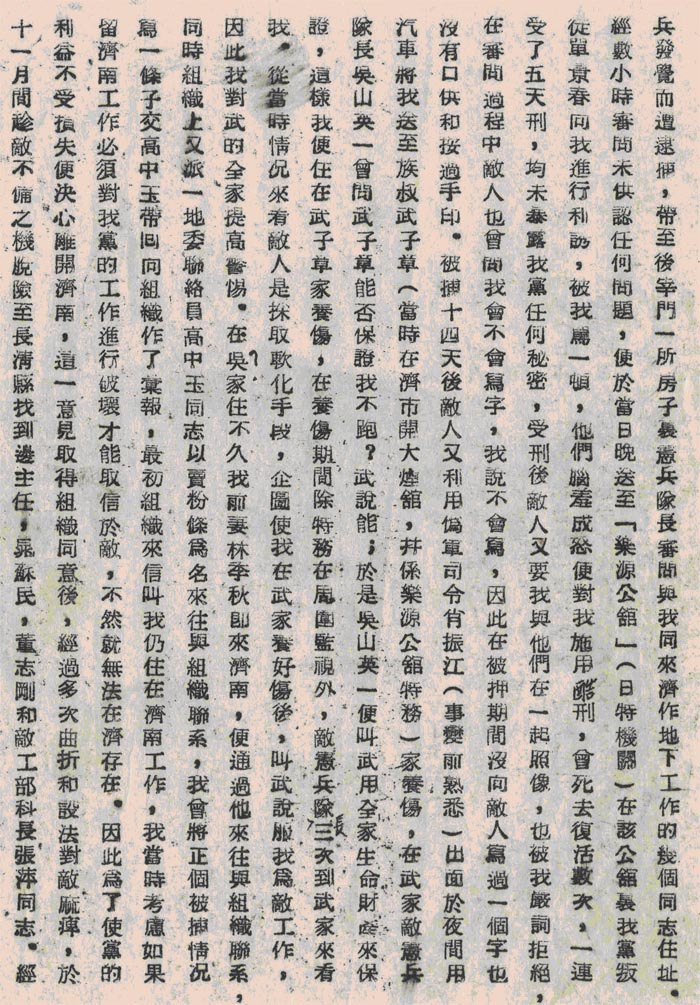 兵發覺而遭逮捕，帶至後宰門一所房子裏憲兵隊長審問與我同來濟作地下工作的幾個同志住址。
經數小時審問未供認任何問題，便於當日晚送至「樂源公舘」（日特機關）在該公舘裏我黨叛
徒單景春向我進行利誘，被我罵一頓，他們腦羞成怒便對我施用酷刑，曾死去復活數次，一連
受了五天刑，均未暴露我黨任何秘密，受刑後敵人又要我與他們在一起照像，也被我嚴詞拒絕，
在審問過程中敵人也曾問我會不會寫字，我說不會寫，因此在被押期間沒向敵人寫過一個字也
沒有口供和按過手印。被捕十四天後敵人又利用偽軍司令肖振江（事變前熟悉）出面於夜間用
汽車將我送至族叔武子草（當時在濟市開大煙舘，并係樂源公舘特務）家養傷，在武家敵憲兵
隊長吳山英一曾問武子草能否保證我不跑？武說能；於是吳山英一便叫武用全家生命財產來保
證，這樣我便住在武子草家養傷，在養傷期間除特務在周圍監視外，敵憲兵隊長三次到武家來看
我，從當時情况來看敵人是採取軟化手段，企圖使我在武家養好傷後，叫武說服我為敵工作，
因此我對武的全家提高警惕。在吳家住不久我前妻林季秋即來濟南，便通過他來往與組織聯系，
同時組織上又派一地委聯絡員高中玉同志以賣粉條爲名來往與組織聯系，我曾將正個被捕情况
寫一條子交高中玉帶回向組織作了彙報，最初組織來信叫我仍住在濟南工作，我當時考慮如果
留濟南工作必須對我黨的工作進行破壞才能取信於敵，不然就無法在濟存在。因此爲了使黨的
利益不受損失便決心離開濟南，這一意見取得組織同意後，經過多次曲折和設法對敵麻痺，於
十一月間趁敵不備之機脫險至長清縣找到邊主任，晁蘇民，董志剛和敵工部科長張萍同志。經